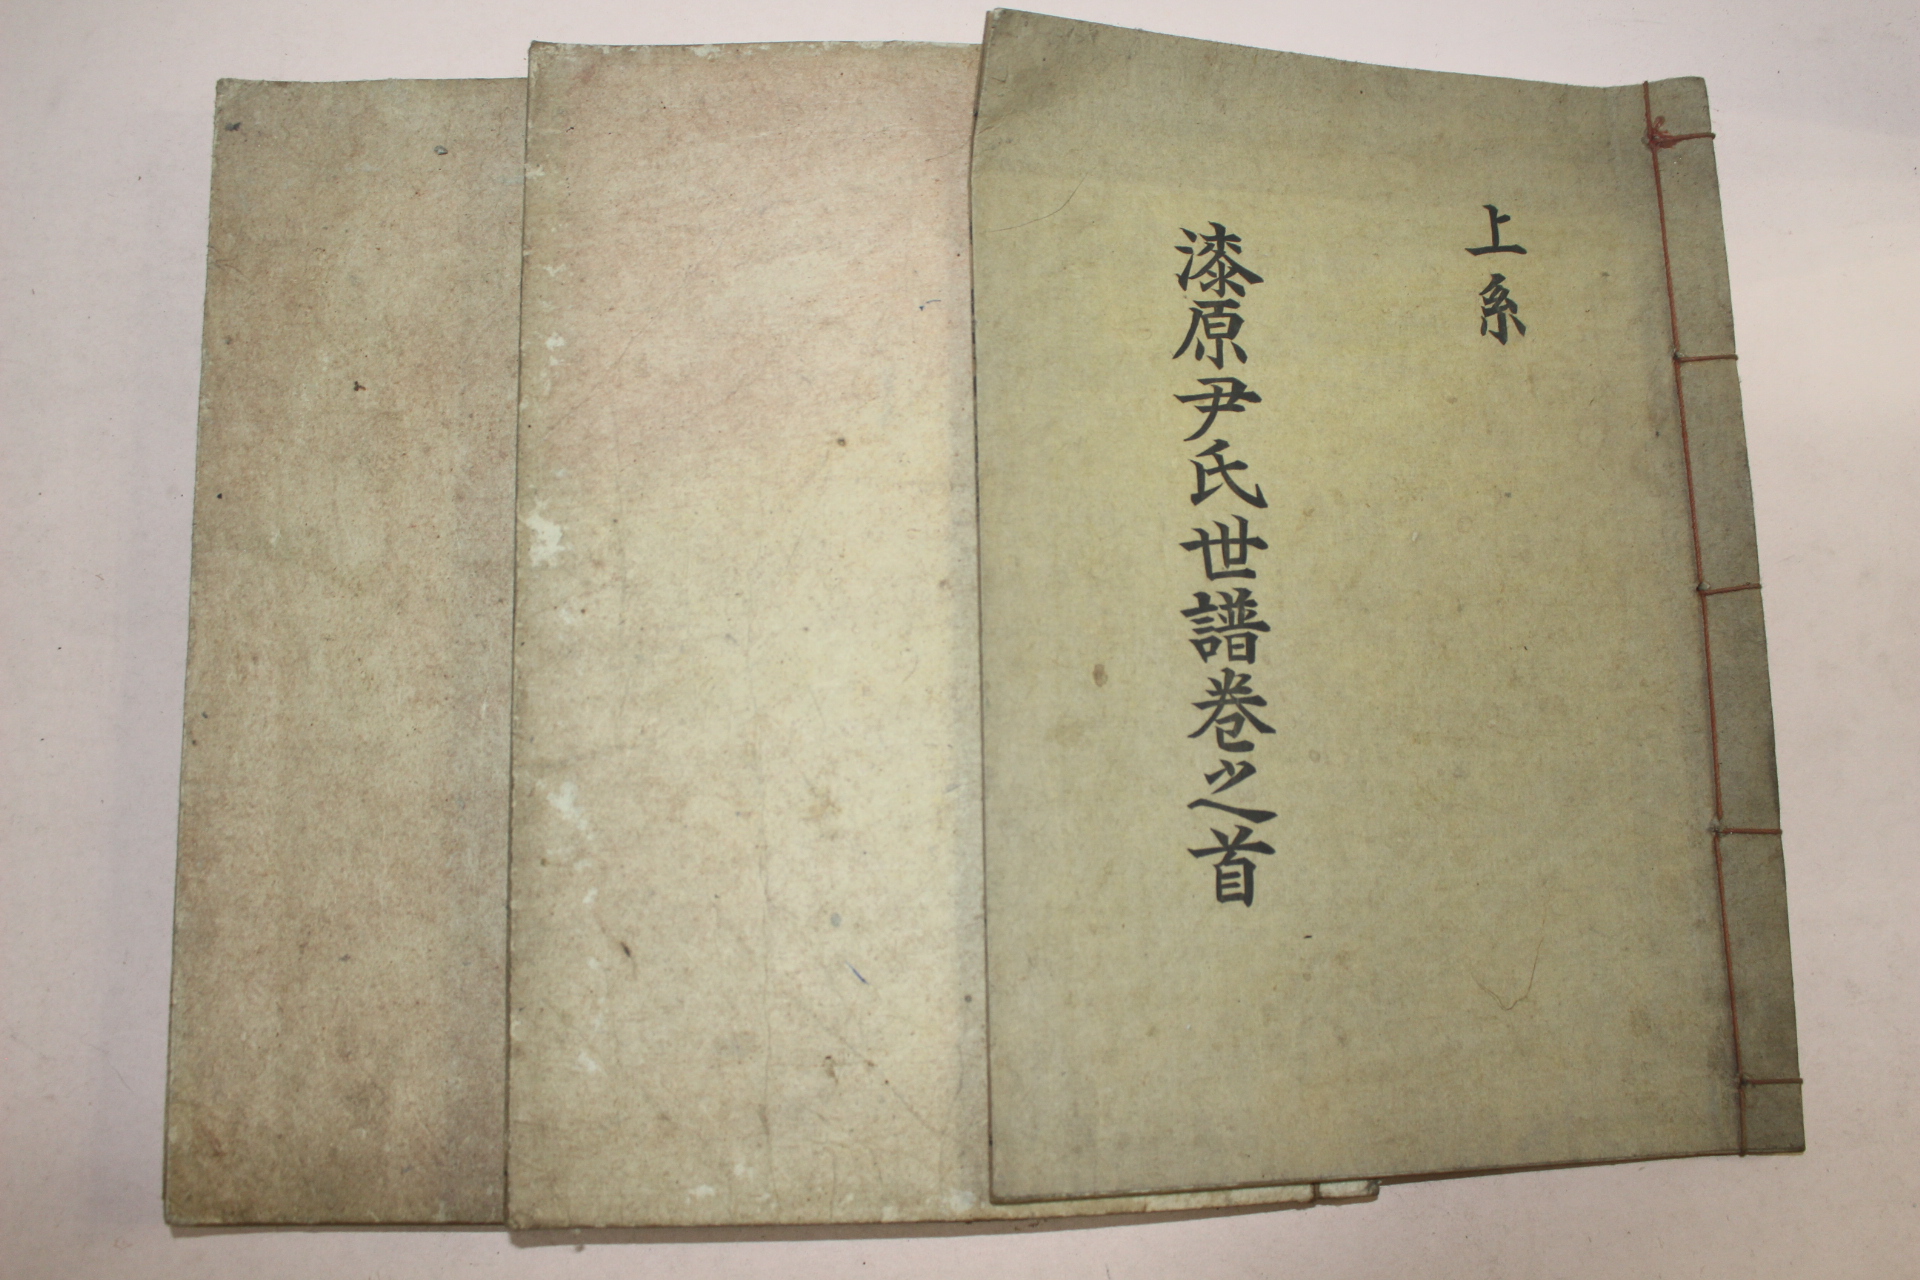 上系
漆原尹氏世譜卷之首